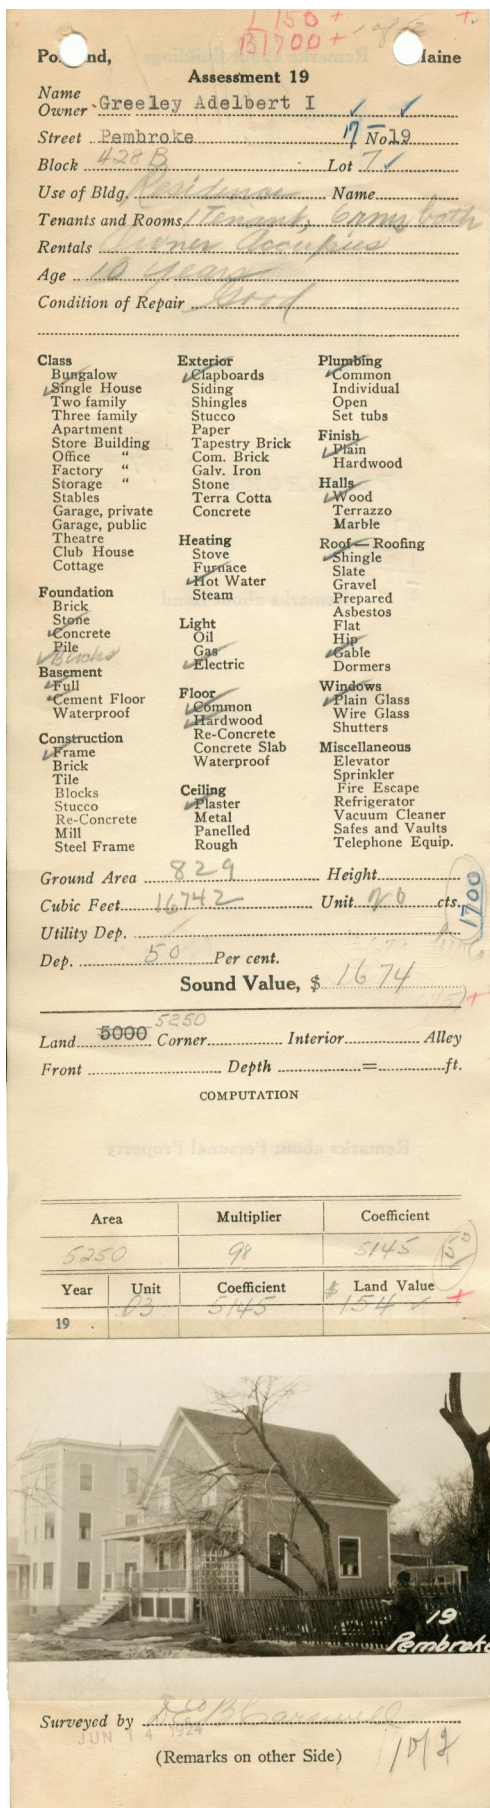 L 150 +
B 1700 +
Portland, Maine
Assessment 19
Name
Owner Greeley Adelbert I
Street Pembroke 17 - No. 19
Block 428 B Lot 7
Use of Bldg. Residence Name
Tenants and Rooms 1 Tenant, 6 rms bath
Rentals Owner Occupies
Age 10 years
Condition of Repair Good
Class
Bungalow
Single House
Two family
Three family
Apartment
Store Building
Office "
Factory "
Storage "
Stables
Garage, private
Garage, public
Theatre
Club House
Cottage
Foundation
Brick
Stone
Concrete
Pile
Blocks
Basement
Full
Cement Floor
Waterproof
Construction
Frame
Brick
Tile
Blocks
Stucco
Re-Concrete
Mill
Steel Frame
Exterior
Clapboards
Siding
Shingles
Stucco
Paper
Tapestry Brick
Com. Brick
Galv. Iron
Stone
Terra Cotta
Concrete
Heating
Stove
Furnace
Hot Water
Steam
Light
Oil
Gas
Electric
Floor
Common
Hardwood
Re-Concrete
Concrete Slab
Waterproof
Ceiling
Plaster
Metal
Panelled
Rough
Plumbing
Common
Individual
Open
Set tubs
Finish
Plain
Hardwood
Halls
Wood
Terrazzo
Marble
Roof — Roofing
Shingle
Slate
Gravel
Prepared
Asbestos
Flat
Hip
Gable
Dormers
Windows
Plain Glass
Wire Glass
Shutters
Miscellaneous
Elevator
Sprinkler
Fire Escape
Refrigerator
Vacuum Cleaner
Safes and Vaults
Telephone Equip.
Ground Area 829 Height
Cubic Feet 16742 Unit 20 cts.
1700
Utility Dep.
Dep. 50 Per cent.
Sound Value, $ 1674
5250
Land 5000 Corner Interior Alley
Front Depth = ft.
COMPUTATION
Area Multiplier Coefficient
5250 98 5145 150
Year Unit Coefficient $ Land Value
19 .03 5145 154
19
Pembroke
Surveyed by
JUN 14 1924
(Remarks on other Side) 1 of 2